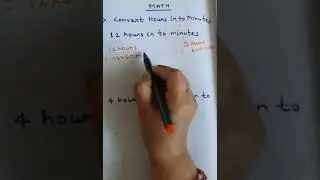 MATH
Convert Hours in to Minutes
12 hours in to minutes
12 hours
12 hours
= 12x60
4 hou in to